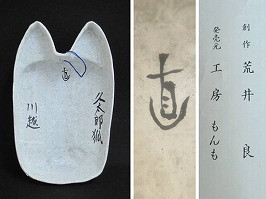 直
久太郎狐
川越
直
創作 荒井 良
発売元 工房 もんも